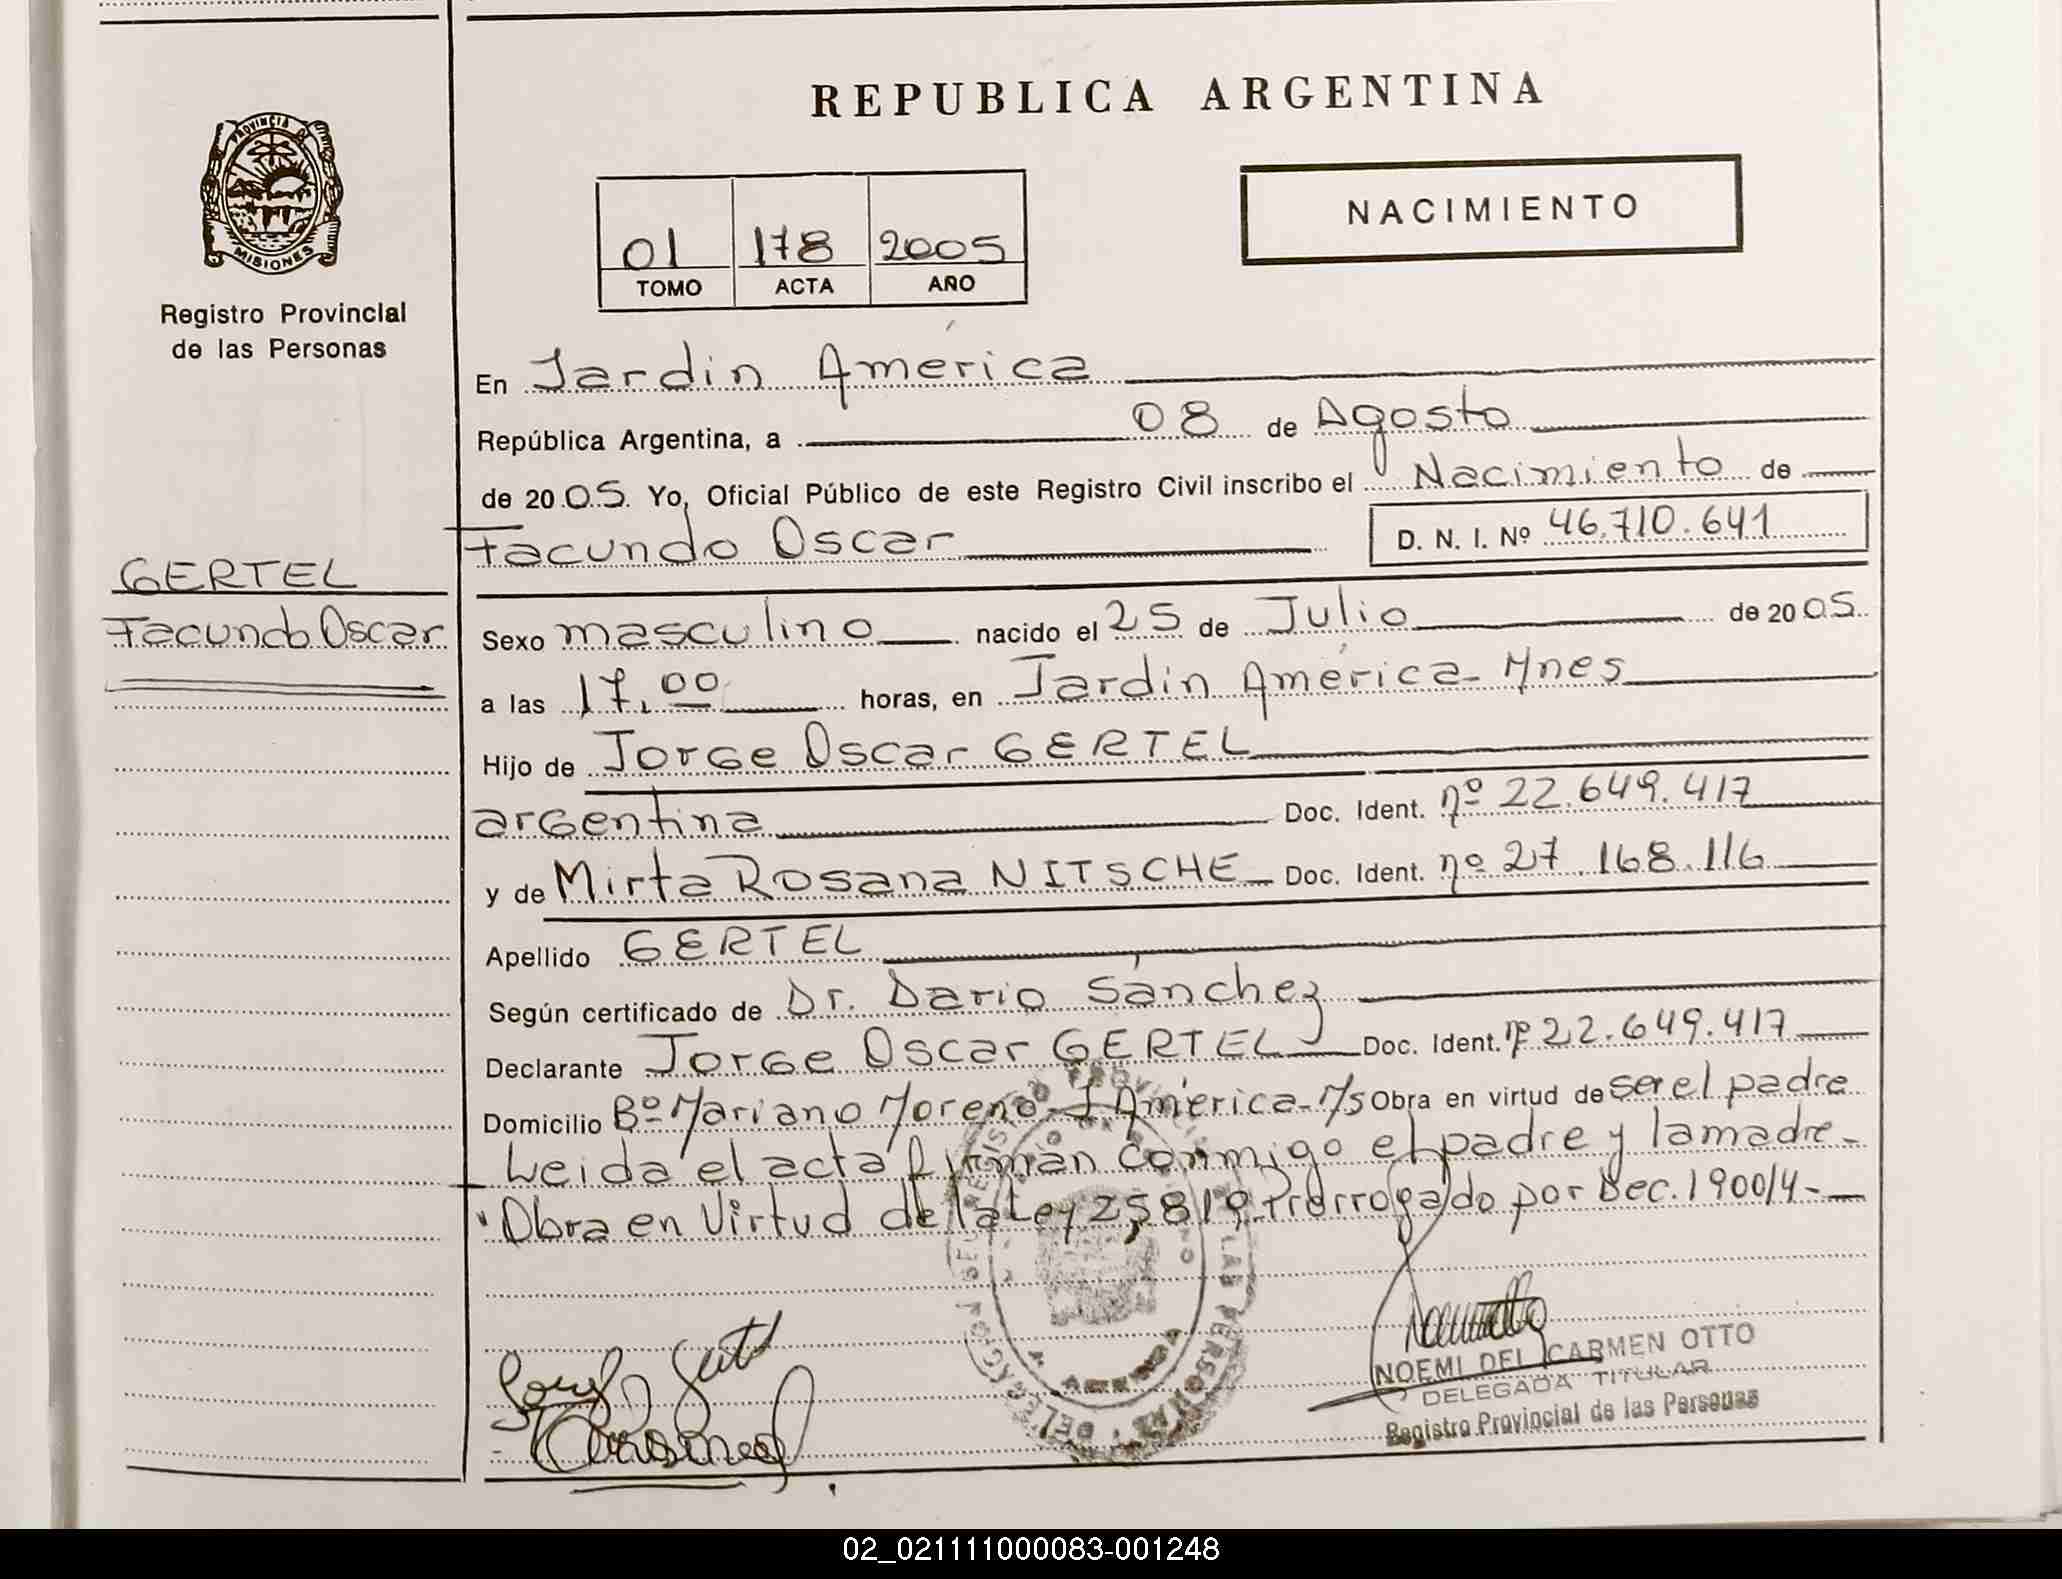 REPUBLICA ARGENTINA
PROVINCIA DE
MISIONES
Registro Provincial
de las Personas
01 178 2005
TOMO ACTA AÑO
NACIMIENTO
En Jardín América
República Argentina, a 08 de Agosto
de 20 05. Yo, Oficial Público de este Registro Civil inscribo el Nacimiento de
Facundo Oscar D. N. I. Nº 46.710.641
GERTEL
Facundo Oscar
Sexo masculino nacido el 25 de Julio de 20 05.
a las 17,00 horas, en Jardín América - Mnes
Hijo de Jorge Oscar GERTEL
argentina Doc. Ident. nº 22.649.417
y de Mirta Rosana NITSCHE Doc. Ident. nº 27.168.116
Apellido GERTEL
Según certificado de Dr. Dario Sánchez
Declarante Jorge Oscar GERTEL Doc. Ident. nº 22.649.417
Domicilio Bº Mariano Moreno - J América - M/s Obra en virtud de ser el padre
Leida el acta firman conmigo el padre y la madre -
Obra en Virtud de la Ley 25.819 Prorrogado por Dec. 1900/4 -
NOEMI DEL CARMEN OTTO
DELEGADA TITULAR
Registro Provincial de las Personas
02_021111000083-001248